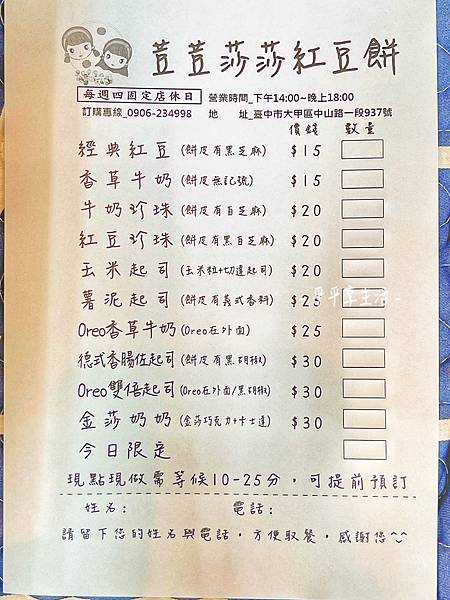 荳荳莎莎紅豆餅
每週四固定店休日 營業時間_下午14:00~晚上18:00
訂購專線_0906-234998 地 址_臺中市大甲區中山路一段937號
價錢 數量
經典紅豆(餅皮有黑芝麻) $15
香草牛奶(餅皮無記號) $15
牛奶珍珠(餅皮有白芝麻) $20
紅豆珍珠(餅皮有黑白芝麻) $20
玉米起司(玉米粒+切達起司) $20
薯泥起司(餅皮有義式香料) $25
Oreo香草牛奶(Oreo在外面) $25
德式香腸佐起司(餅皮有黑胡椒) $30
Oreo雙倍起司(Oreo在外面/黑胡椒) $30
金莎奶奶(金莎巧克力+卡士達) $30
今日限定
現點現做需等候10-25分，可提前預訂
姓名： 電話：
請留下您的姓名與電話，方便取餐，感謝您^^